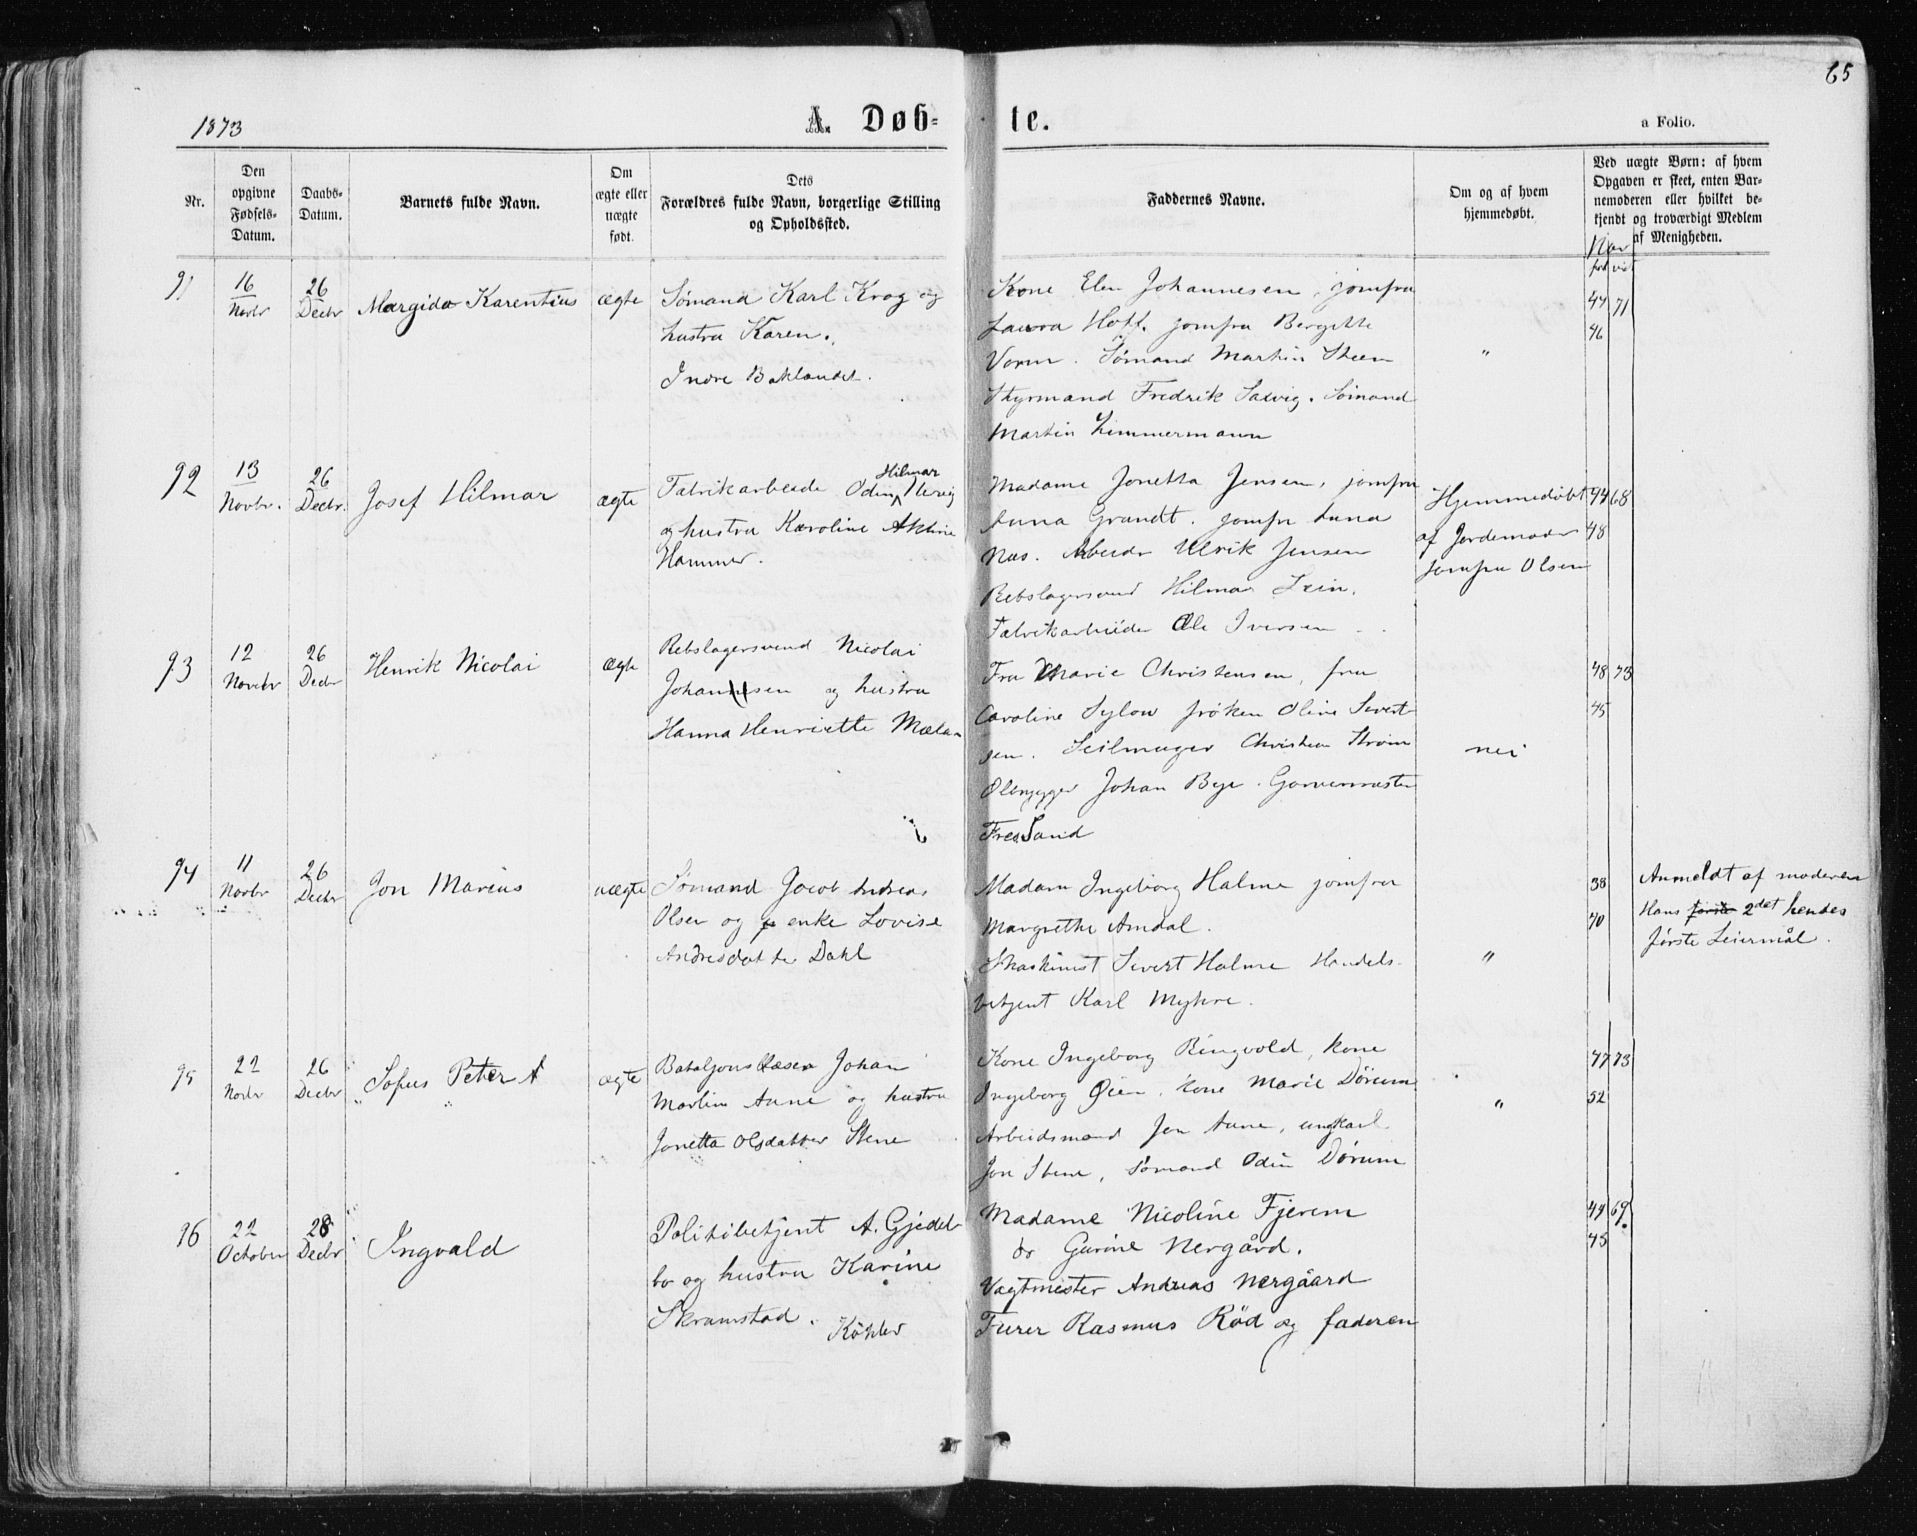 65
1873
A. Døb-te.
a Folio.
Nr.
Den opgivne Fødsels-Datum.
Daabs-Datum.
Barnets fulde Navn.
Om ægte eller uægte født.
Dets Forældres fulde Navn, borgerlige Stilling og Opholdssted.
Faddernes Navne.
Om og af hvem hjemmedøbt.
Ved uægte Børn: af hvem Opgaven er skeet, enten Barnemoderen eller hvilket bekjendt og troværdigt Medlem af Menigheden.
91
16 Novbr
26 Decbr
Margido Karentius
ægte
Sømand Karl Krog og
hustru Karen.
Indre Baklandet.
Kone Elen Johannesen, jomfru
Laura Hoff. jomfru Bergitte
Vorm. Sømand Martin Steen
Styrmand Fredrik Saxvig. Sømand
Martin Zimmermann
"
44 71
46
92
13 Novbr.
26 Decbr.
Josef Hilmar
ægte
Hilmar
Fabrikarbeide Odin Herig
og hustru Karoline Aktine
Hammer.
Madame Jonetta Jensen, jomfru
Anna Grandt. jomfr Anna
Næs. Arbeidr Ulrik Jensen
Rebslagersvend Hilmar Lein.
Fabrikarbeider Ole Iversen
Hjemmedøbt
af Jordemoder
jomfru Olsen
44 68
48
93
12 Novbr
26 Decbr
Henrik Nicolai
ægte
Rebslagersvend Nicolai
Johannesen og hustru
Hanna Henriette Mælan
Fru Marie Christensen, fru
Caroline Sylow frøken Oline Sivert-
sen. Seilmager Christian Strøm
Ølbrygger Johan Bye. Garvermester
Fres Sand
nei
48 73
45
94
11 Novbr
26 Decbr
Jon Marius
uægte
Sømand Jacob Andreas
Olsen og enke Lovise
Andresdatter Dahl
Madam Ingeborg Halme jomfru
Margrethe Amdal.
Maskinist Sivert Halme Handels-
betjent Karl Myhre.
"
38
70
Anmeldt af moderen
Hans første 2det hendes
første Leiermål.
95
22 Novbr
26 Decbr
Sofus Peter A
ægte
Bataljonslæser Johan
Martin Aune og hustru
Jonetta Olsdatter Stene
Kone Ingeborg Ringvold, kone
Ingeborg Øien, kone Marie Dørum
Arbeidsmand Jon Aune, ungkarl
Jon Stene, Sømand Odin Dørum
"
47 73
52
96
22 October
28 Decbr
Ingvald
Politibetjent A. Gjedeb-
bo og hustru Karine
Skramstad.
Köhler
Madame Nicoline Fjerem
do Gurine Nergård.
Vagtmester Andreas Nergåard
Furer Rasmus Röd og faderen
44 69.
45